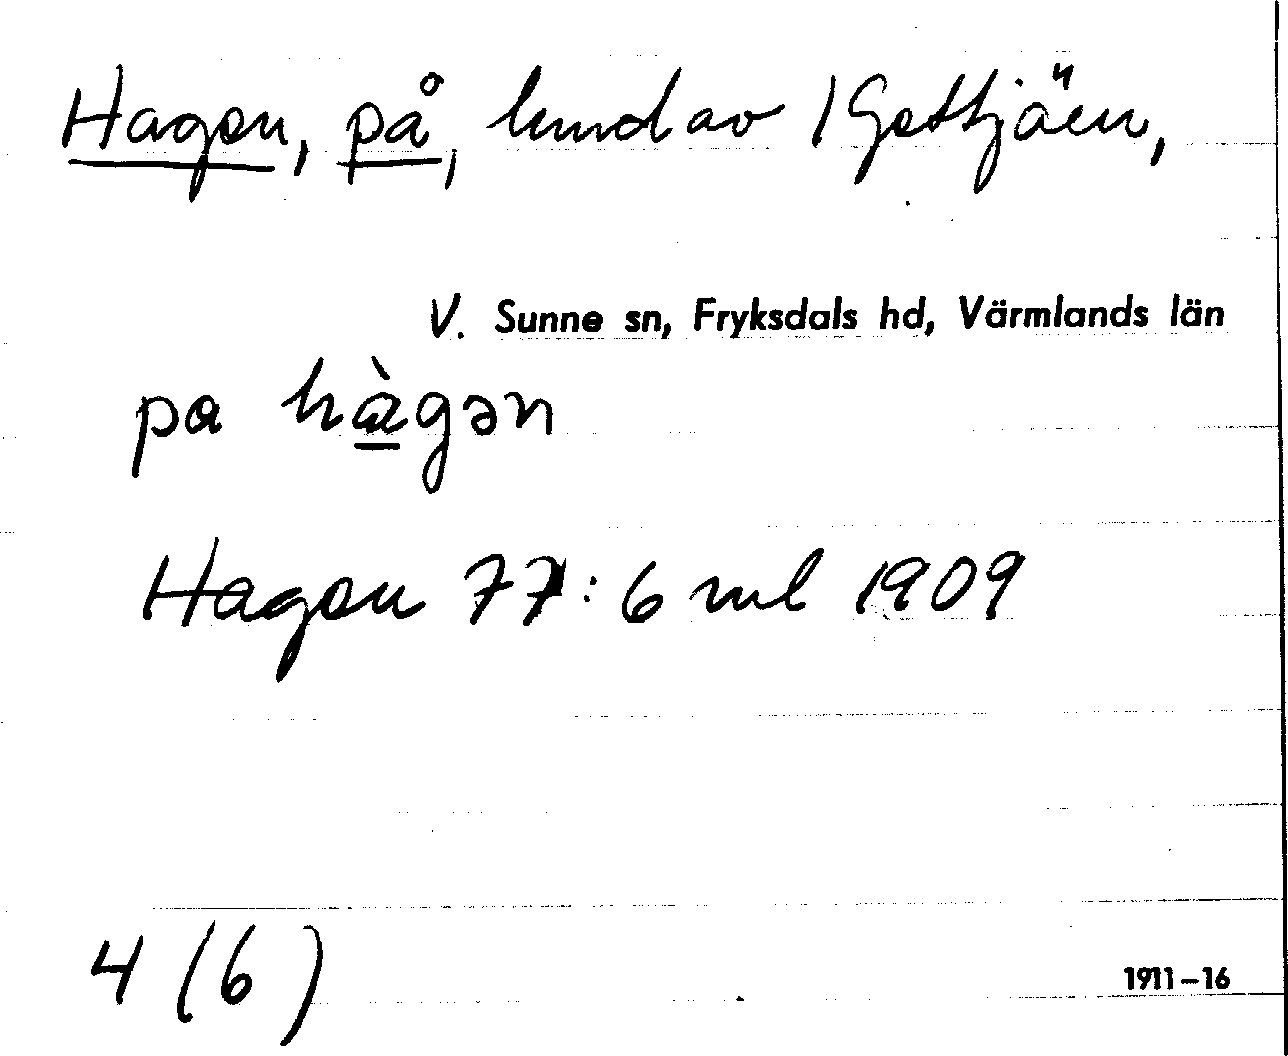 Hagen, på, hmd av 1 Gettjärn,
V. Sunne sn, Fryksdals hd, Värmlands län
pa hàgən
Hagen 77:6 ml 1909
4 (6)
1911–16